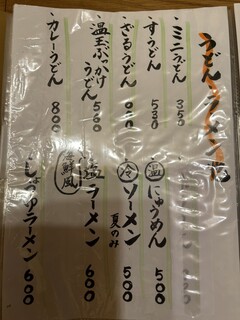 うどん・ラーメン
・ミニうどん 350
・すうどん 530
・ざるうどん
・温玉ぶっかけうどん 560
・カレーうどん 800
温 にゅうめん 500
冷 ソーメン 夏のみ 500
塩ラーメン 600
海鮮風
しょうゆラーメン 600